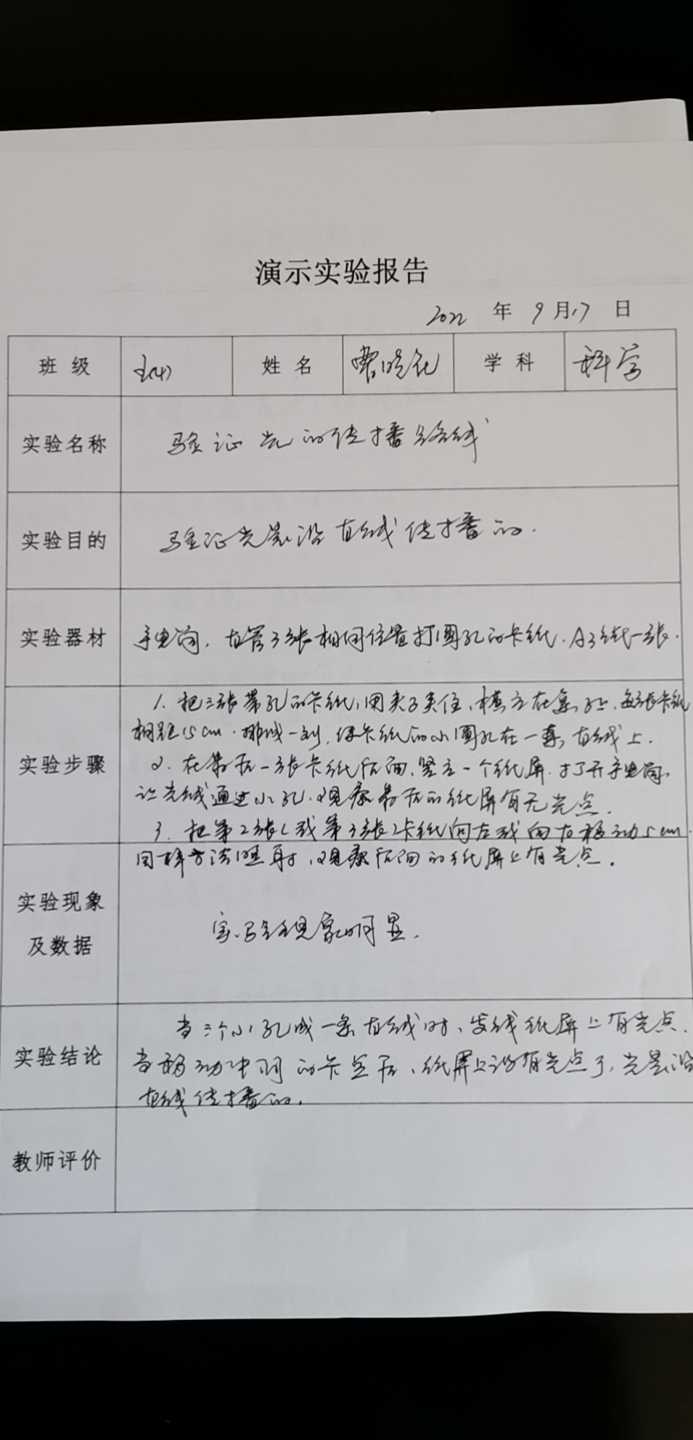 演示实验报告
2022 年 9 月 17 日
班 级 姓 名 学 科 科学
实验名称 验证光的传播路线
实验目的 验证光是沿直线传播的.
实验器材 手电筒, 直管 3张相同位置打圆孔的卡纸. A3纸一张.
实验步骤 1. 把三张带孔的卡纸,用夹子夹住,横立在桌上,每张卡纸
相距15cm.排成一列,使卡纸的小圆孔在一条直线上.
2. 在最后一张卡纸后面,竖立一个纸屏.打开手电筒,
让光线通过小孔,观察最后的纸屏有无光点.
3. 把第2张(或第3张)卡纸向左或向右移动5cm.
同样方法照射,观察后面的纸屏上有光点.
实验现象及数据 实验现象明显.
实验结论 当三个小孔成一条直线时,发线纸屏上有光点.
当移动中间的卡 后,纸屏上没有光点了,光是沿
直线传播的.
教师评价